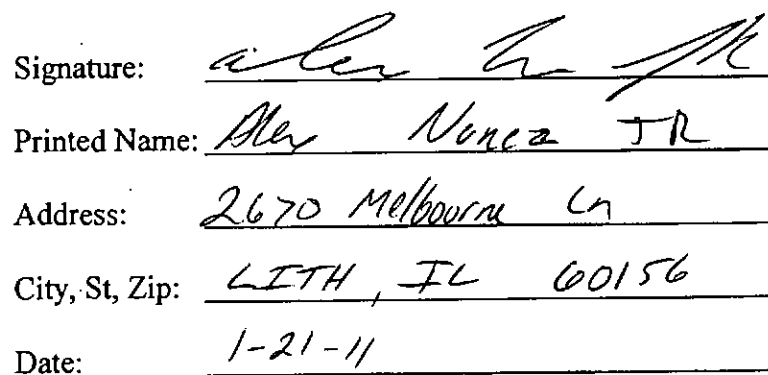 Signature: Alex N JR
Printed Name: Alex Nunez JR
Address: 2670 Melbourne Ln
City, St, Zip: LITH, IL 60156
Date: 1-21-11